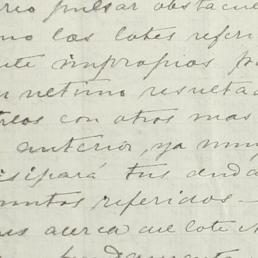 pulsar obstacu
no los lotes referi
te impropios p
n ultimo resulta
treos con otros mas
anterior, ya muy
isipará tus duda
untos referidos—
es acerca del lote
fundamento